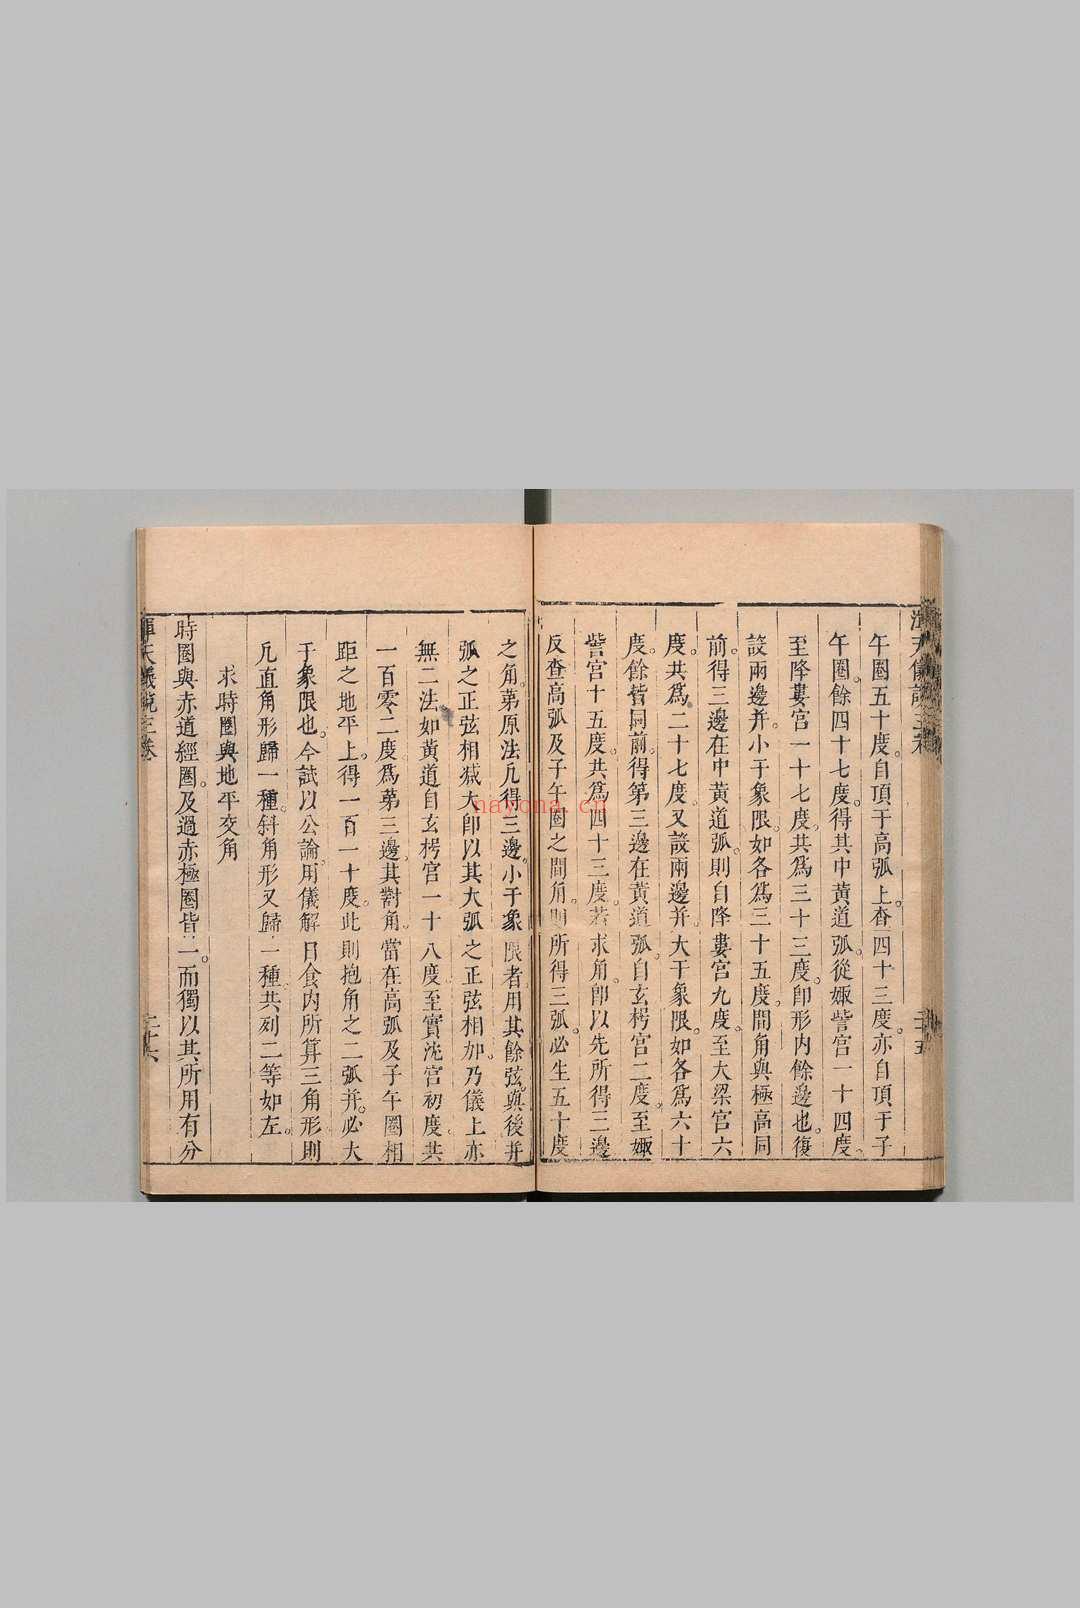 午圈五十度。自頂于高弧上。查四十三度。亦自頂于子
午圈。餘四十七度。得其中黃道弧。從娵訾宮一十四度。
至降婁宮一十七度。共爲三十三度。卽形內餘邊也。復
設兩邊并。小于象限。如各爲三十五度。間角與極高同
前。得三邊在中黃道弧。則自降婁宮九度。至大梁宮六
度。共爲二十七度。又設兩邊并。大于象限。如各爲六十
度。餘皆同前。得第三邊在黃道弧。自玄枵宮二度。至娵
訾宮十五度。共爲四十三度。若求角。卽以先所得三邊
反查高弧及子午圈之間角。則所得三弧。必生五十度
之角。第原法凡得三邊。小于象限者。用其餘弦。與後并
弧之正弦相減。大卽以其大弧之正弦相加。乃儀上亦
無二法。如黃道自玄枵宮一十八度。至實沈宮初度。共
一百零二度爲第三邊。其對角。當在高弧及子午圈相
距之地平上。得一百一十度。此則抱角之二弧并。必大
于象限也。今試以公論。用儀解日食內所算三角形。則
凡直角形歸一種。斜角形又歸一種。共列二等如左。
求時圈與地平交角
時圈與赤道經圈。及過赤極圈皆一。而獨以其所用有分
渾天儀說三卷
二十六
二十五
nayona.cn